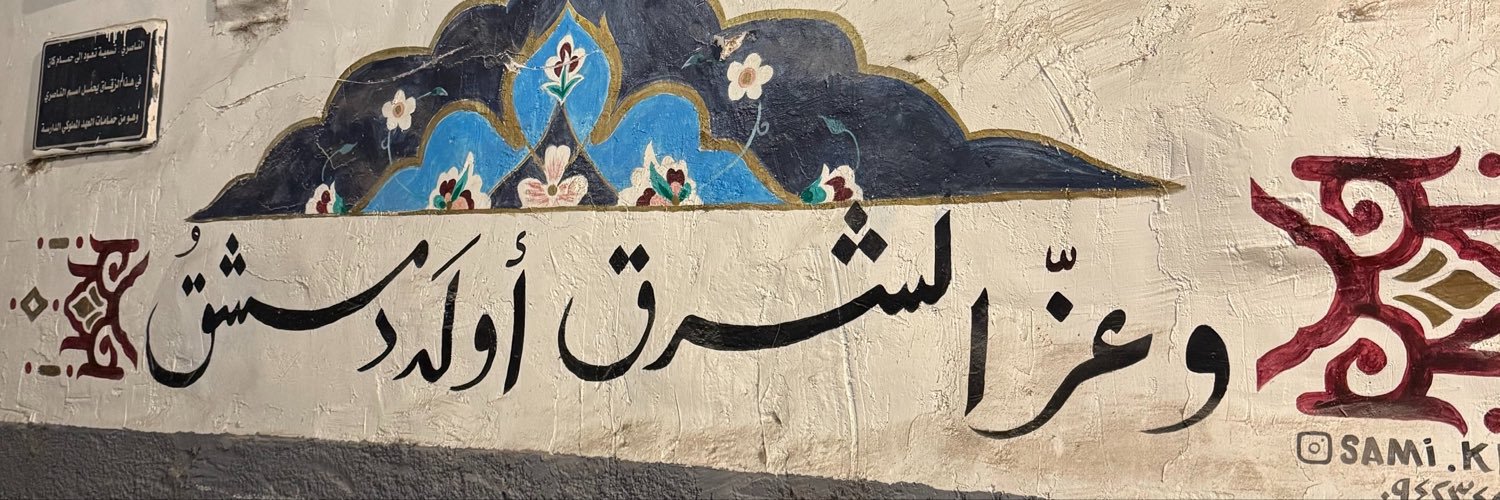 الناصري: تسمية تعود إلى حمام كان
في هذا الزقاق يحمل اسم الناصري
وهو من حمامات العهد المملوكي الدارسة
وعزّ الشرق أولَه دمشقُ
SAMi.K